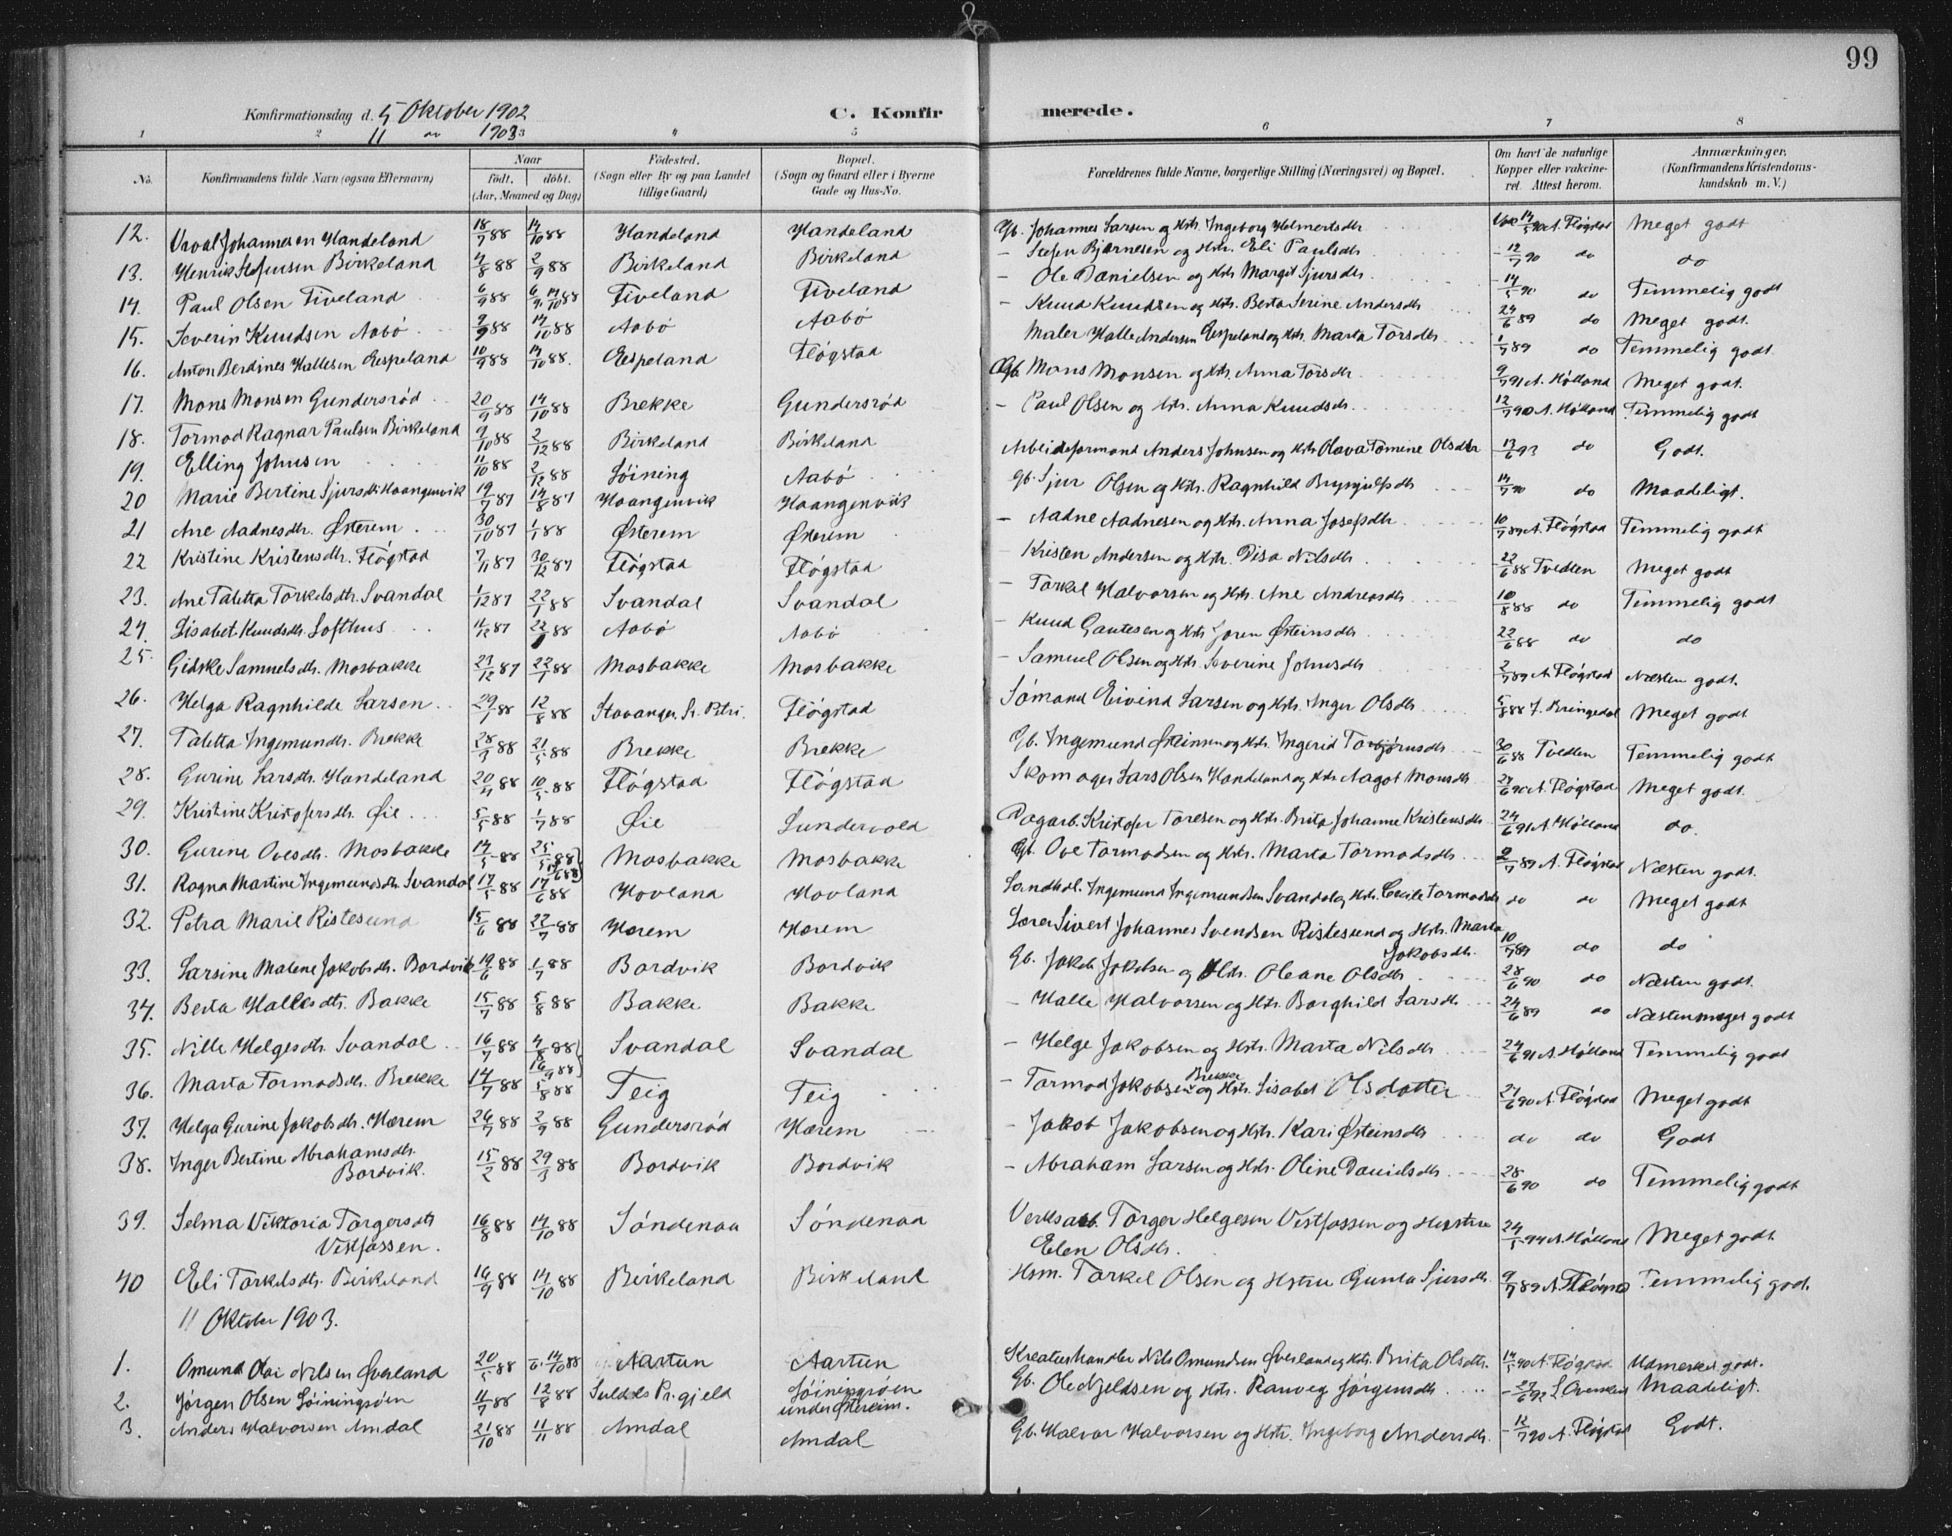 99
Konfirmationsdag d. 5 Oktober 1902
11 " 1903
C. Konfirmerede.
1 2 3 4 5 6 7 8
No. Konfirmandens fulde Navn (ogsaa Efternavn) Naar født. døbt. (Aar, Maaned og Dag) Fødested. (Sogn eller By og paa Landet tillige Gaard) Bopæl. (Sogn og Gaard eller i Byerne Gade og Hus-No. Forældrenes fulde Navne, borgerlige Stilling (Næringsvei) og Bopæl. Om havt de naturlige Kopper eller vakcineret. Attest herom. Anmærkninger, (Konfirmandens Kristendomskundskab m. V.)
12. Johannesen Handeland 18/7 88 14/10 88 Handeland Handeland Gb. Johannes Larsen og Hstr. Ingeborg Helmertsdtr. A. Fløgstad Meget godt
13. Henrik Stefensen Birkeland 4/8 88 2/9 88 Birkeland Birkeland – Stefen Bjørnesen og Hstr. Eli Paulsdtr. – 12/7 90 do do
14. Paul Olsen Tiveland 6/9 88 14/10 88 Tiveland Tiveland – Ole Danielsen og Hstr. Margit Sjursdtr. – 14/5 90 do Temmelig godt
15. Severin Knudsen Aabø 9/9 88 14/10 88 Aabø Aabø – Knud Knudsen og Hstr. Berta Serine Andersdtr. 24/6 89 do Meget godt.
16. Anton Berdines Hallesen Espeland 10/9 88 14/10 88. Espeland Fløgstad Maler Halle Andersen Espeland og Hstr. Marta Torsdtr. 1/7 89 do Temmelig godt
17. Mons Monsen Gundersrød 20/9 88 14/10 88 Brekke Gundersrød Gb. Mons Monsen og Hstr. Anna Torsdtr. 9/7 91 A. Hølland Meget godt.
18. Tormod Ragnar Paulsen Birkeland 9/10 88 2/12 88 Birkeland Birkeland – Paul Olsen og Hstr. Anna Knudsdtr. 12/7 90 A. Hølland Temmelig godt
19. Elling Johnsen 11/10 88 2/12 88 Søining Aabø Arbeidsformand Anders Johnsen og Hstr. Olava Tomine Olsdtr 13/6 93 do Godt.
20 Marie Bertine Sjursdtr. Haangenvik 19/7 87 14/8 87 Haangenvik Haangenvik Gb. Sjur Olsen og Hstr. Ragnhild Brynjulfsdtr. 14/7 90 do Maadeligt.
21 Ane Aadnesdtr. Østerem 30/10 87 1/1 88 Østerem Østerem – Aadne Aadnesen og Hstr. Anna Josefsdtr. 10/7 89 A. Fløgstad Temmelig godt
22 Kristine Kristensdtr. Fløgstad 7/11 87 30/12 87 Fløgstad Fløgstad – Kristen Andersen og Hstr. Disa Nilsdtr. 22/6 88 Tvedten Meget godt
23. Ane Taletta Torkelsdtr. Svandal 1/12 87 22/1 88 Svandal Svandal – Torkel Halvorsen og Hstr. Ane Andreasdtr. 10/8 88 do Temmelig godt
24. Lisabet Knudsdtr. Lofthus 11/12 87 22/1 88 Aabø Aabø – Knud Gautesen og Hstr. Joren Østeinsdtr. 22/6 88 do do
25. Gidske Samuelsdtr. Mosbakke 23/12 87 22/1 88 Mosbakke Mosbakke – Samuel Olsen og Hstr. Severine Johnsdtr. 2/7 89 A. Fløgstad Næsten godt.
26. Helga Ragnhilde Larsen 29/1 88 12/8 88 Stavanger St. Petri. Fløgstad Sømand Eivind Larsen og Hstr. Inger Olsdtr. 5/8 88 J. Bringedal Meget godt
27. Taletta Ingemundtr. Brekke 28/3 88 21/5 88 Brekke Brekke Gb. Ingemund Østeinsen og Hstr. Ingerid Torbjørnsdtr. 30/6 88 Tvedten Temmelig godt
28. Gurine Larsdtr. Handeland 20/4 88 10/5 88 Fløgstad Fløgstad Skomager Lars Olsen Handeland og Hstr. Aagot Monsdtr. A. Fløgstad Meget godt.
29. Kristine Kristofersdtr. Øie 5/5 88 1/7 88 Øie Sundervold Dagarb. Kristofer Toresen og Hstr. Brita Johanne Kristensdtr. 24/6 91 A. Hølland do.
30. Gurine Ovesdtr. Mosbakke 14/5 88 25/5 88 Mosbakke Mosbakke Gb. Ove Tormodsen og Hstr. Marta Tormodsdtr. 2/7 89 A. Fløgstad Næsten godt.
31. Ragna Martine Ingemundsdtr. Svandal 17/5 88 17/6 88 Hovland Hovland Landhdl. Ingemund Ingemundsen Svandal og Hstr. Cecilie Tormodsdtr. do do Meget godt
32. Petra Marie Ristesund 15/6 88 22/7 88 Hærem Hærem Lærer Sivert Johannes Svendsen Ristesund og Hstr. Marta Jakobsdtr. 10/7 89 do do
33. Larsine Malene Jakobsdtr. Bordvik 19/6 88 1/7 88 Bordvik Bordvik Gb. Jakob Jakobsen og Hstr. Oleane Olsdtr. 28/6 90 do Næsten godt.
34. Berta Hallesdtr. Bakke 15/7 88 5/8 88 Bakke Bakke – Halle Halvorsen og Hstr. Borghild Larsdtr. 24/6 89 do Næsten meget godt
35. Nille Helgesdtr. Svandal 16/7 88 4/8 88 16/9 88 Svandal Svandal – Helge Jakobsen og Hstr. Marta Nilsdtr. 24/6 91 A. Hølland Temmelig godt
36. Marta Tormodsdtr. Brekke 14/7 88 5/8 88 Teig Teig – Tormod Jakobsen Brekke og Hstr. Lisabet Olsdatter A. Fløgstad Meget godt
37. Helga Gurine Jakobsdtr. Hærem 26/7 88 2/9 88 Gundersrød Hærem – Jakob Jakobsen og Hstr. Kari Østeinsdtr. do do Godt
38. Inger Bertine Abrahamsdtr. Bordvik. 15/2 88 29/3 88 Bordvik Bordvik – Abraham Larsen og Hstr. Oline Danielsdtr. 28/6 90 do Temmelig godt
39. Selma Viktoria Torgersdtr Vestfossen. 16/8 88 14/10 88 Søndenaa Søndenaa Verksarb. Torger Helgesen Vestfossen og Hustru Elen Olsdtr. 24/5 94 A. Hølland Meget godt
40 Eli Torkelsdtr. Birkeland 16/9 88 14/10 88 Birkeland Birkeland Hsm. Torkel Olsen og Hstru Gunla Sjursdtr. 9/7 89 A. Fløgstad Temmelig godt.
11 Oktober 1903.
1. Omund Olai Nilsen Øverland 20/5 88 14/10 88 Aartun Aartun Kreaturhandler Nils Omundsen Øverland og Hstr. Brita Olsdtr. 14/5 90 A. Fløgstad Udmerket godt.
2. Jørgen Olsen Søiningsøen 11/7 88 12/8 88 Suldals Pr.gjeld Søiningsøen under Østerem. Gb. Ole Njeldsen og Hstr. Ranveg Jørgensdtr. – 27/6 92 Maadeligt.
3. Anders Halvorsen Amdal 21/10 88 11/11 88 Amdal Amdal Gb. Halvor Halvorsen og Hstr. Ingeborg Andersdtr. – 12/7 90 A. Fløgstad Godt.